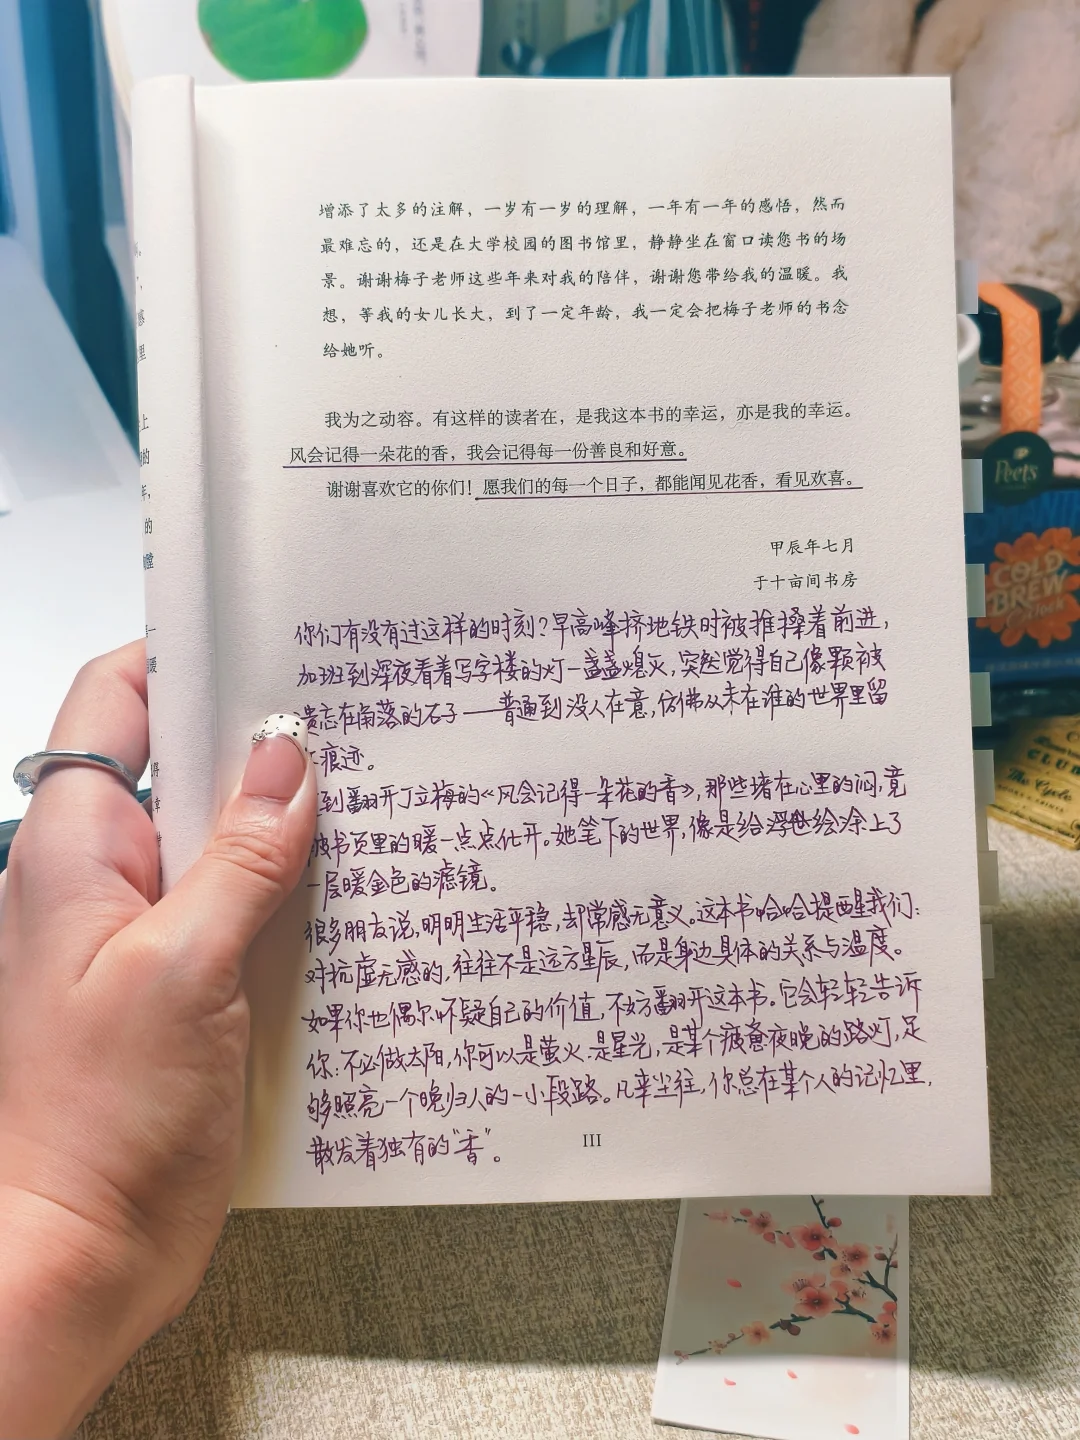 增添了太多的注解，一岁有一岁的理解，一年有一年的感悟，然而
最难忘的，还是在大学校园的图书馆里，静静坐在窗口读您书的场
景。谢谢梅子老师这些年来对我的陪伴，谢谢您带给我的温暖。我
想，等我的女儿长大，到了一定年龄，我一定会把梅子老师的书念
给她听。
我为之动容。有这样的读者在，是我这本书的幸运，亦是我的幸运。
风会记得一朵花的香，我会记得每一份善良和好意。
谢谢喜欢它的你们！愿我们的每一个日子，都能闻见花香，看见欢喜。
甲辰年七月
于十亩间书房
你们有没有过这样的时刻？早高峰挤地铁时被推搡着前进，
加班到深夜看着写字楼的灯一盏盏熄灭，突然觉得自己像颗被
遗忘在角落的石子——普通到没人在意，仿佛从未在谁的世界里留
痕迹。
到翻开丁立梅的《风会记得一朵花的香》，那些堵在心里的闷，竟
被书页里的暖一点点化开。她笔下的世界，像是给浮世绘涂上了
一层暖金色的滤镜。
很多朋友说，明明生活平稳，却常感无意义。这本书恰恰提醒我们：
对抗虚无感的，往往不是远方星辰，而是身边具体的关系与温度。
如果你也偶尔怀疑自己的价值，不妨翻开这本书。它会轻轻告诉
你：不必做太阳，你可以是萤火，是星光，是某个疲惫夜晚的路灯，足
够照亮一个晚归人的一小段路。凡来尘往，你总在某个人的记忆里，
散发着独有的“香”。
III
Peet's
COLD
BREW